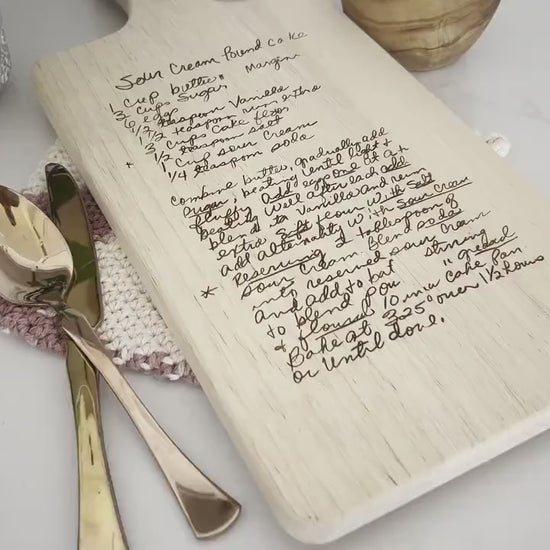 Sour Cream Pound Cake
1 cup butter " Margine
3 cups Sugar
6 eggs
1/2 teaspoon Vanilla
1/2 teaspoon rum extra
3 cups cake flour
* 1/2 teaspoon salt
1 cup sour cream
1/4 teaspoon soda
combine butter, gradually add
sugar, beating until light &
fluffy. Add eggs one at a
beating well after each add
blend in Vanilla and rum
extra Sift flour with Salt
add alternatly with Sour Cream
Reserving 1 tablespoon of
* sour cream. Blend soda
into reserved sour cream
and add to bat stirring
to blend pou " greased
& floured 10 in cake pan.
Bake at 325° over 1 1/2 hours
or until done.